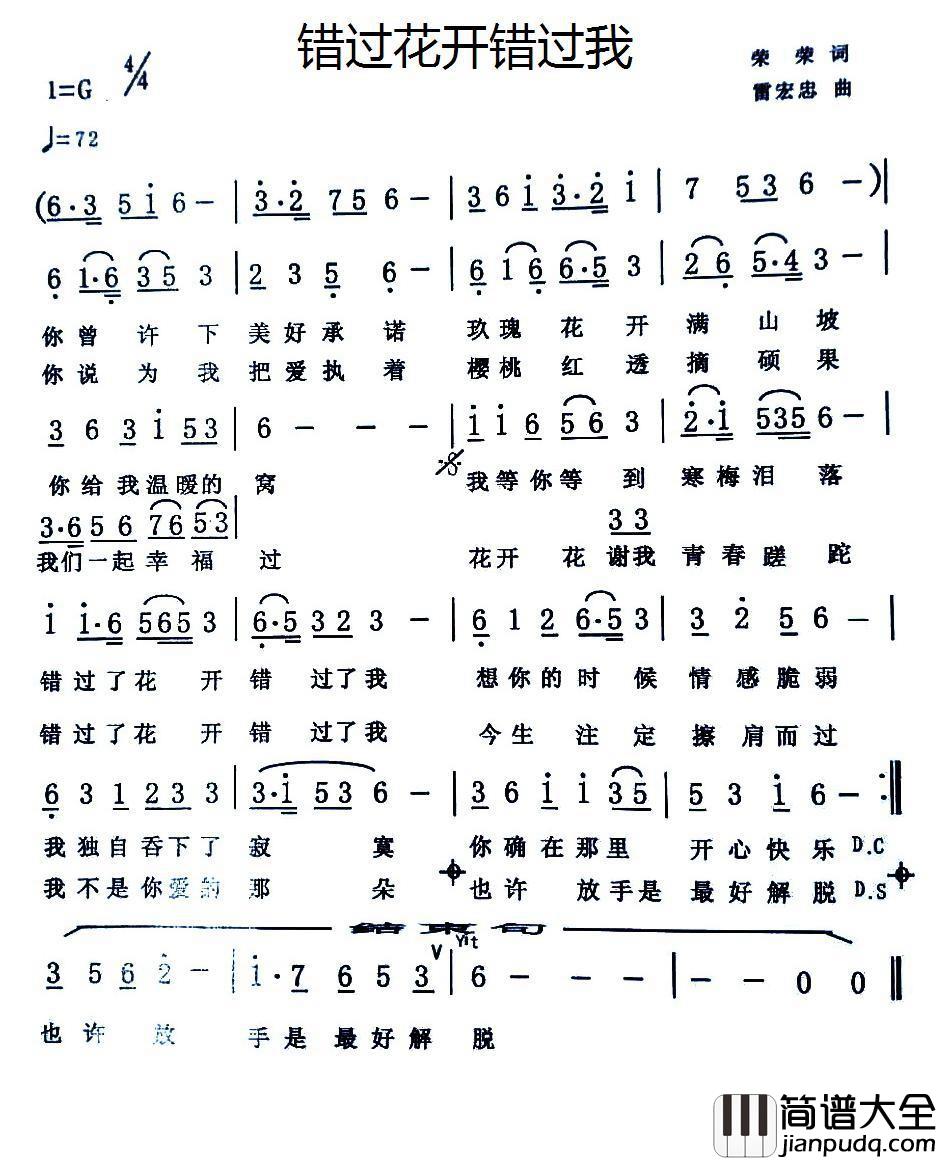 错过花开错过我
荣荣词
1=G 4/4
雷宏忠 曲
♩=72
(6·3 5i 6- | 3·2 75 6- | 36i 3·2 i | 7 53 6-)|
6 1·6 35 3 | 2 3 5 6- | 616 6·5 3 | 26 5·4 3- |
你曾许下美好承诺 玫瑰花开满山坡
你说为我把爱执着 樱桃红透摘硕果
3 6 3 i 53 | 6 - - - | i i 6 56 3 | 2·i 535 6- |
你给我温暖的窝 我等你等到寒梅泪落
3·6 56 76 53 | 33
我们一起幸福过 花开花谢我青春蹉跎
i i·6 565 3 | 6·5 323 - | 6 1 2 6·5 3 | 3 2 5 6 - |
错过了花开错过了我 想你的时候情感脆弱
错过了花开错过了我 今生注定擦肩而过
6 3 1 233 3 | 3·i 53 6 - | 3 6 i i 35 | 5 3 i 6 - :||
我独自吞下了寂寞 你确在那里开心快乐 D.C
我不是你爱的那朵 也许放手是最好解脱 D.S
结束句
V Yit
3 5 6 2 - | i·7 6 5 3 | 6 - - - | - - 0 0 ||
也许放手是最好解脱
简谱大全
jianpudq.com